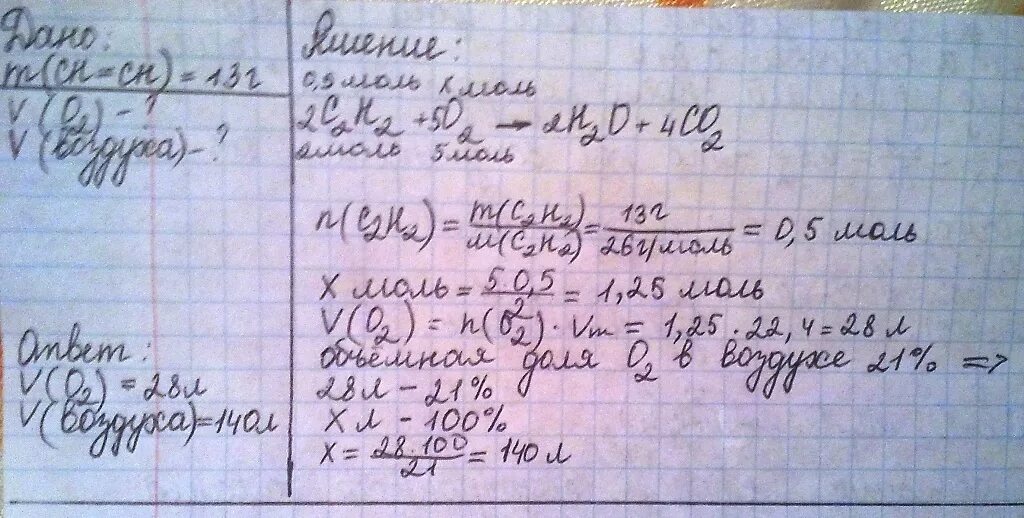 Дано:
m(CH=CH) = 13г
V(O2) - ?
V(воздуха) - ?
Ответ:
V(O2) = 28л
V(воздуха)=140л
Решение:
0,5 моль х моль
2C2H2 + 5O2 → 2H2O + 4CO2
2моль 5моль
n(C2H2) = m(C2H2)/M(C2H2) = 13г/26г/моль = 0,5 моль
х моль = 5·0,5/2 = 1,25 моль
V(O2) = n(O2)·Vm = 1,25·22,4=28 л
объёмная доля O2 в воздухе 21% =>
28л - 21%
х л - 100%
х = 28·100/21 = 140 л